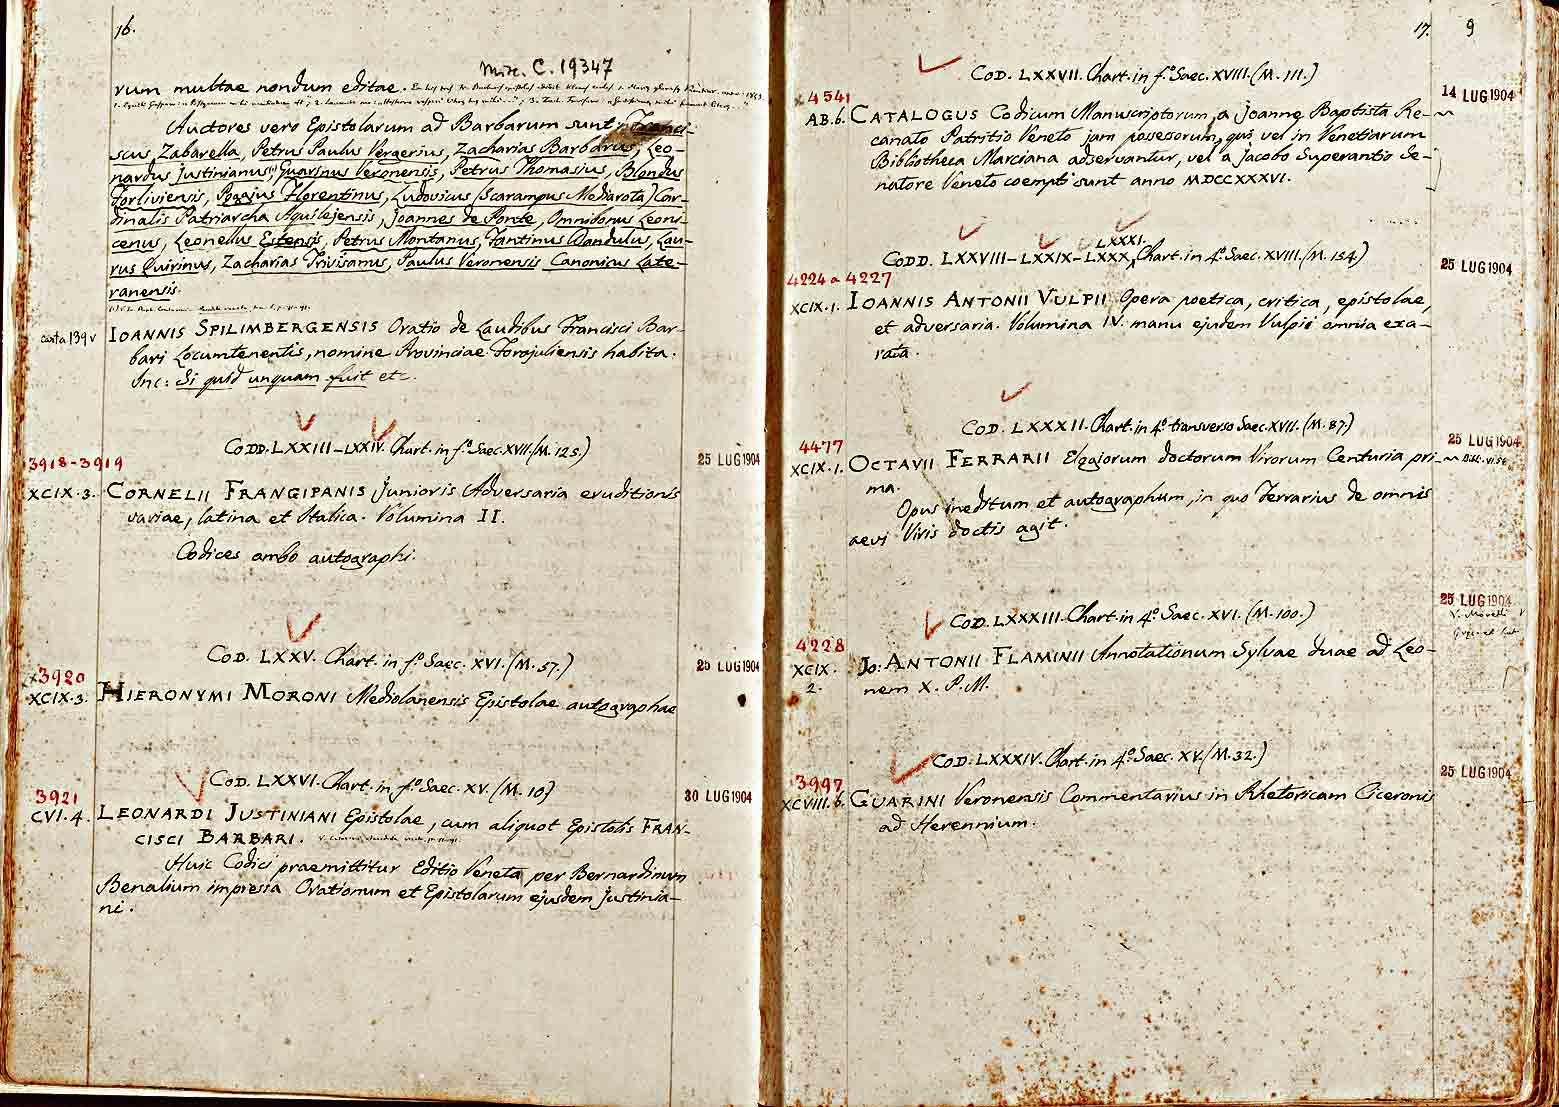 16.
Misc. C. 19347
rum multae nondum editae.
Auctores vero Epistolarum ad Barbarum sunt Franci-
scus Zabarella, Petrus Paulus Vergerius, Zacharias Barbarus, Leo-
nardus Justinianus, Guarinus Veronensis, Petrus Thomasius, Blondus
Forliviensis, Poggius Florentinus, Ludovicus (Scarampus Mediarota) Car-
dinalis Patriarcha Aquilejensis, Joannes de Ponte, Omnibonus Leoni-
cenus, Leonellus Estensis, Petrus Montanus, Fantinus Dandulus, Lau-
rus Quirinus, Zacharias Trivisanus, Paulus Veronensis Canonicus Late-
ranensis.
carta 139v
IOANNIS SPILIMBERGENSIS Oratio de Laudibus Francisci Bar-
bari Locumtenentis, nomine Provinciae Forojuliensis habita.
Inc: Si quid unquam fuit etc.
CODD. LXXIII-LXXIV. Chart. in fº. Saec. XVII. (M. 125.)
3918-3919
25 LUG 1904
XCIX.3. CORNELII FRANGIPANIS Junioris Adversaria eruditionis
variae, latina et Italica. Volumina II.
Codices ambo autographi.
COD. LXXV. Chart. in fº. Saec. XVI. (M. 57.)
25 LUG 1904
3920
XCIX.3. HIERONYMI MORONI Mediolanensis Epistolae autographae
COD. LXXVI. Chart. in fº. Saec. XV. (M. 10)
3921
30 LUG 1904
CVI.4. LEONARDI JUSTINIANI Epistolae, cum aliquot Epistolis FRAN-
CISCI BARBARI.
Huic Codici praemittitur Editio Veneta per Bernardinum
Benalium impressa Orationum et Epistolarum ejusdem Justinia-
ni.
17.
9
COD. LXXVII. Chart. in fº. Saec. XVIII. (M. 111.)
x 4541
14 LUG 1904
AB.6. CATALOGUS Codicum Manuscriptorum, a Joanne Baptista Re-
canato Patritio Veneto jam possessorum, qui vel in Venetiarum
Bibliotheca Marciana adservantur, vel a Jacobo Superantio Se-
natore Veneto coempti sunt anno MDCCXXXVI.
CODD. LXXVIII-LXXIX-LXXX, LXXXI. Chart. in 4º. Saec. XVIII. (M. 154)
4224 a 4227
25 LUG 1904
XCIX.1. IOANNIS ANTONII VULPII Opera poetica, critica, epistolae,
et adversaria. Volumina IV. manu ejusdem Vulpii omnia exa-
rata.
COD. LXXXII. Chart. in 4º. transverso Saec. XVII. (M. 87.)
4477
25 LUG 1904
XCIX.1. OCTAVII FERRARII Elogiorum doctorum Virorum Centuria pri-
ma.
Opus ineditum et autographum, in quo Ferrarius de omnis
aevi Viris doctis agit.
COD. LXXXIII. Chart. in 4º. Saec. XVI. (M. 100.)
25 LUG 1904
4228
XCIX.
2.
JO: ANTONII FLAMINII Annotationum Sylvae duae ad Leo-
nem X. P.M.
COD. LXXXIV. Chart. in 4º. Saec. XV. (M. 32.)
3997
25 LUG 1904
XCVIII.6. GUARINI Veronensis Commentarius in Rhetoricam Ciceronis
ad Herennium.